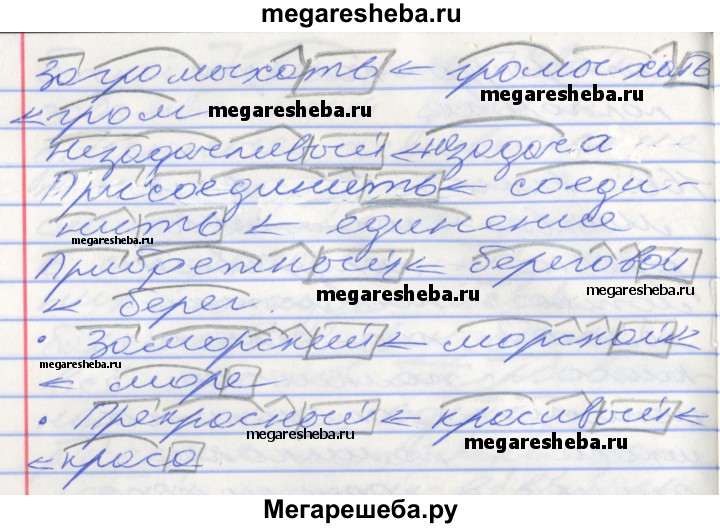 megaresheba.ru
Загромыхать < громыхать
< гром megaresheba.ru megaresheba.ru
Незадачливый < незадача
Присоединить < соеди-
нить < единение
megaresheba.ru
Прибрежный < береговой
< берег. megaresheba.ru megaresheba.ru
• Заморский < морской <
megaresheba.ru
< море
• Прекрасный < красивый <
megaresheba.ru megaresheba.ru
< краса
Мегарешеба.ру